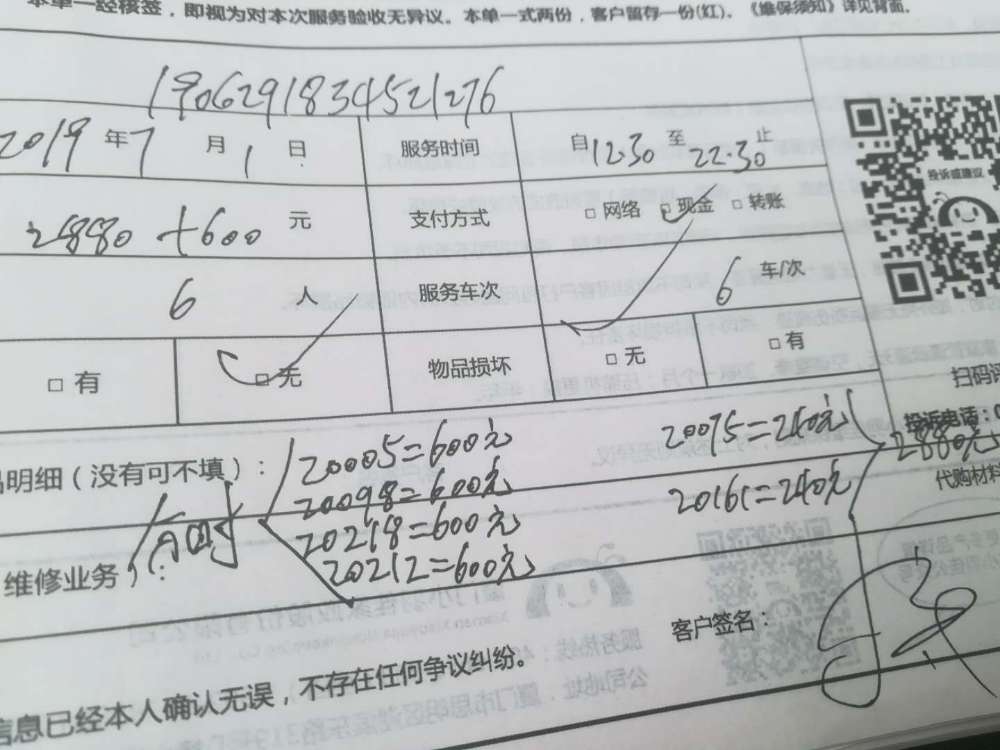 本单一经核签，即视为对本次服务验收无异议。本单一式两份，客户留存一份(红)。《维保须知》详见背面。
1906291834521276
2019 年 7 月 1 日 服务时间 自 12:30 至 22:30 止
2880 +600 元 支付方式 □ 网络 □ 现金 □ 转账
6 人 服务车次 6 车/次
□ 有 □ 无 物品损坏 □ 无 □ 有
投诉或建议
扫码评
投诉电话：0
明细（没有可不填）：
20005=600元 20075=240元
20098=600元 2880元
20218=600元 20161=240元
20212=600元
代购材料
维修业务
客户签名：
信息已经本人确认无误，不存在任何争议纠纷。